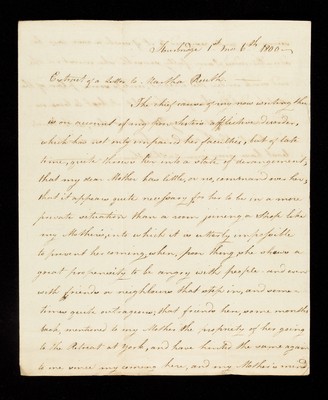 1st mo 6th 1800
Extract of a Letter to Martha Routh
The chief cause of my now writing thee
is on account of my poor Sister's afflictive disorder,
which has not only impaired her faculties, but of late
time, quite thrown her into a state of derangement,
that my dear Mother has little, or no, command over her,
that it appears quite necessary for her to be in a more
private situation than a room joining a Shop like
my Mother's, into which it is utterly impossible
to prevent her coming, when, poor thing she shews a
great propensity to be angry with people and even
with friends & neighbours that step in, and some-
times quite outrageous, that friends here, some months
back, mentioned to my Mother the propriety of her going
to the Retreat at York, and have hinted the same again
to me since my coming here, and my Mother's mind